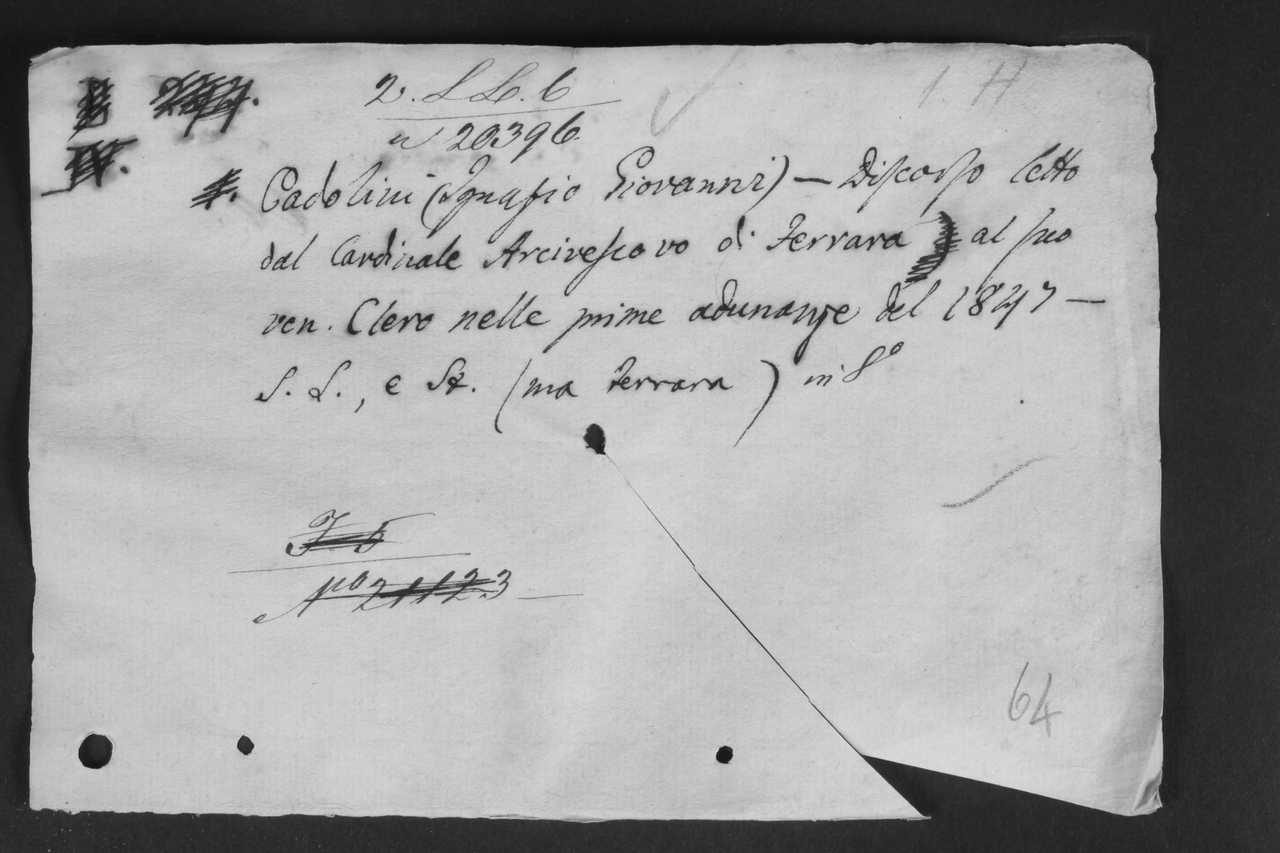 2. L L. 6
1. H
n 20396.
IV.
Cadolini (Ignazio Giovanni) — Discorso letto
dal Cardinale Arcivescovo di Ferrara) al suo
ven. Clero nelle prime adunanze del 1847 —
S. L., e St. (ma Ferrara) in 8º
F 5
Nº 21123
64